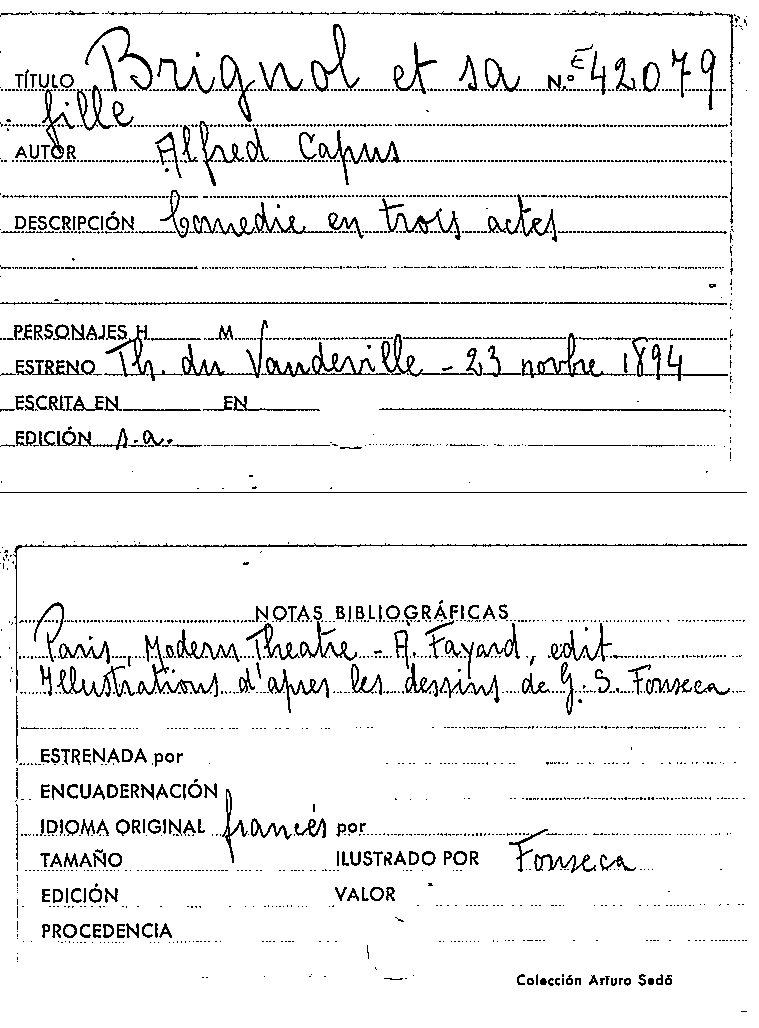 TÍTULO Brignol et sa N.º E42079
fille
AUTOR Alfred Capus
DESCRIPCIÓN Comedie en trois actes
PERSONAJES H M
ESTRENO Th. du Vaudeville - 23 novbre 1894
ESCRITA EN EN
EDICIÓN s.a.
NOTAS BIBLIOGRÁFICAS
Paris, Modern Theatre - A. Fayard, edit.
Illustrations d'apres les dessins de G. S. Fonseca
ESTRENADA por
ENCUADERNACIÓN
IDIOMA ORIGINAL francés por
TAMAÑO ILUSTRADO POR Fonseca
EDICIÓN VALOR
PROCEDENCIA
Colección Arturo Sedó